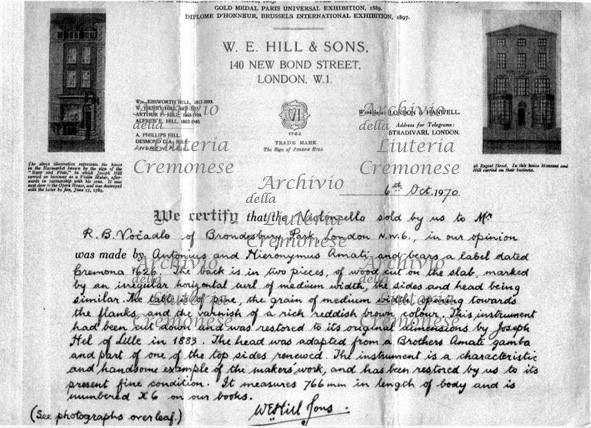 GOLD MEDAL PARIS UNIVERSAL EXHIBITION, 1889.
DIPLOME D'HONNEUR, BRUSSELS INTERNATIONAL EXHIBITION, 1897.
W. E. HILL & SONS,
140 NEW BOND STREET,
LONDON, W.1.
Wm. EBSWORTH HILL,
W. HENRY HILL,
ARTHUR F. HILL,
ALFRED E. HILL,
A. PHILLIPS HILL.
DESMOND D'A. HILL.
VI
1762
TRADE MARK
The Sign of Joseph Hill
LONDON & HANWELL.
Address for Telegrams:
STRADIVARI, LONDON.
The above illustration represents the house
in the Haymarket known by the sign of the
"Harp and Flute," in which Joseph Hill
carried on business as a Violin Maker,
Archivio
della
Liuteria
Cremonese
Archivio
della
Liuteria
Cremonese
Archivio
della
Liuteria
Cremonese
Archivio
della
Liuteria
Cremonese
Archivio
della
Liuteria
Cremonese
6th Oct. 1970.
We certify that the Violoncello sold by us to Mr
R. B. Vočadlo of Brondesbury Park, London N.W.6., in our opinion
was made by Antonius and Hieronymus Amati and bears a label dated
Cremona 1626. The back is in two pieces, of wood cut on the slab, marked
by an irregular horizontal curl of medium width, the sides and head being
similar. The table is of pine, the grain of medium width, opening towards
the flanks, and the varnish of a rich reddish brown colour. This instrument
had been cut down and was restored to its original dimensions by Joseph
Hel of Lille in 1883. The head was adapted from a Brothers Amati gamba
and part of one of the top sides renewed. The instrument is a characteristic
and handsome example of the makers' work, and has been restored by us to its
present fine condition. It measures 766 mm in length of body and is
numbered X6 on our books.
W E Hill & Sons.
(See photographs overleaf.)